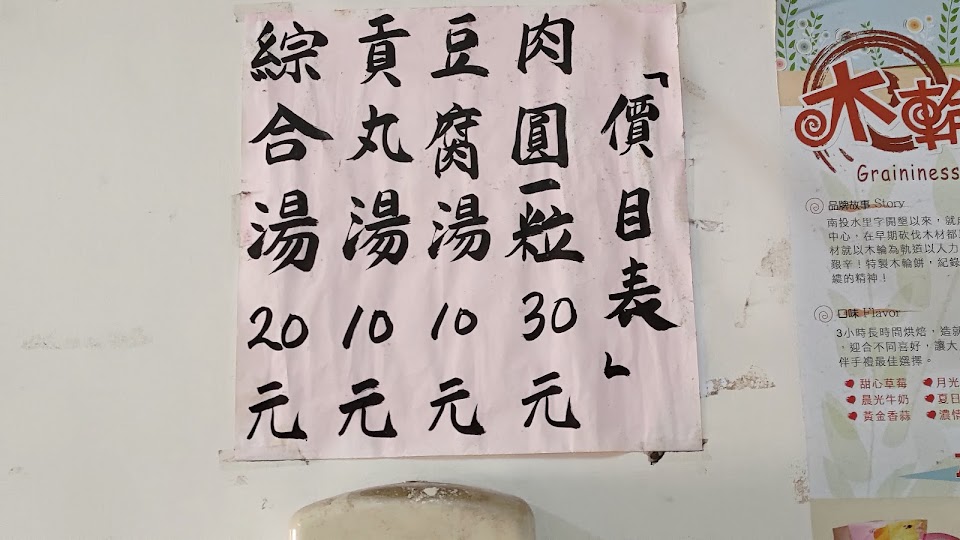 「價目表」
肉圓一粒30元
豆腐湯10元
貢丸湯10元
綜合湯20元
木輪
Graininess
品牌故事 Story
南投水里字開墾以來，就
中心，在早期砍伐木材都
材就以木輪為軌道以人力
艱辛！特製木輪餅，紀錄
續的精神！
口味 Flavor
3小時長時間烘焙，造就
。迎合不同喜好，讓大
伴手禮最佳選擇。
甜心草莓
月光
晨光牛奶
夏日
黃金香蒜
濃情